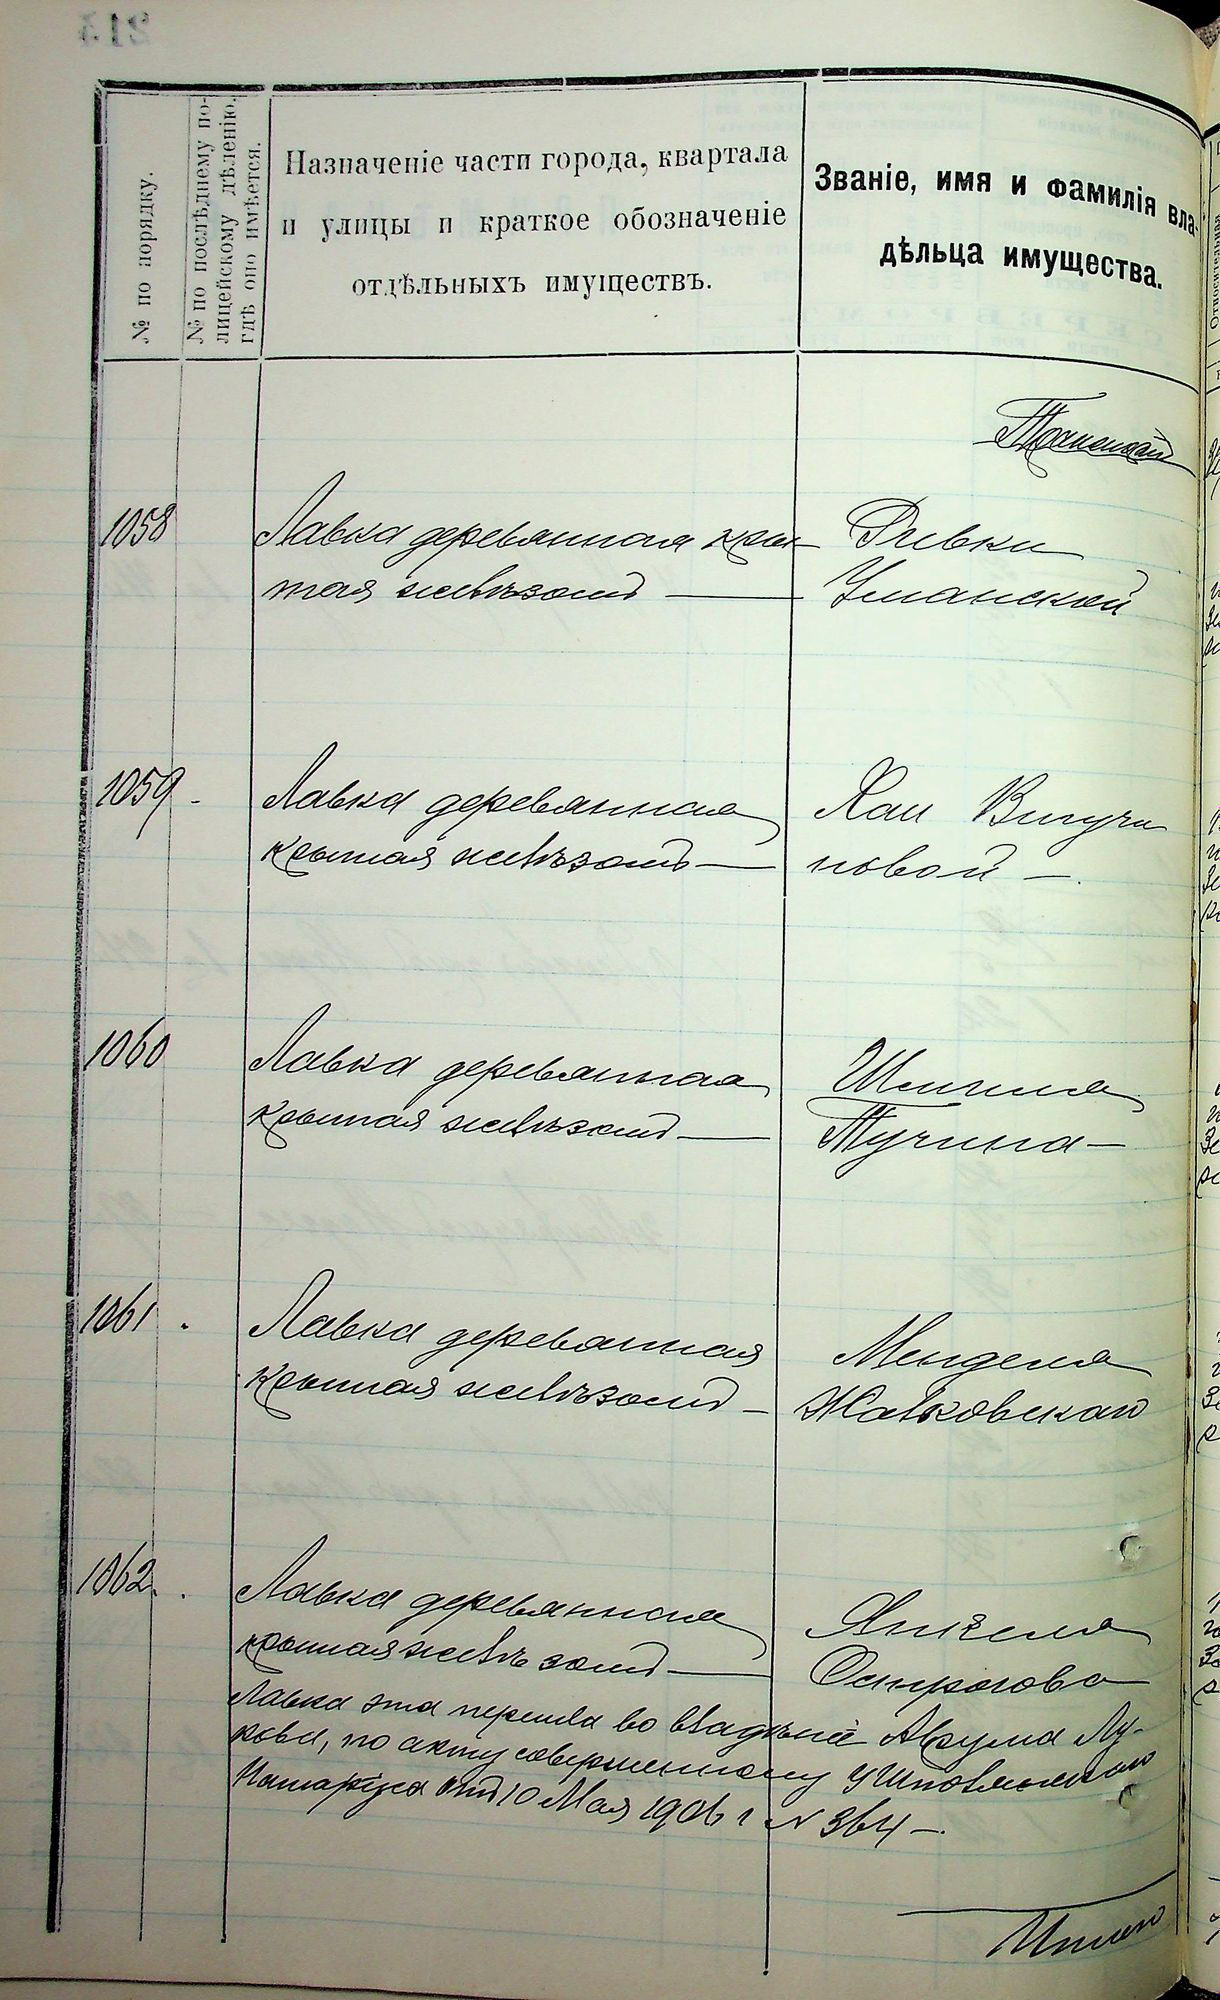 № по порядку.
№ по послѣднему по-
лицейскому дѣленію,
гдѣ оно имѣется.
Назначеніе части города, квартала
и улицы и краткое обозначеніе
отдѣльныхъ имуществъ.
Званіе, имя и фамилія вла-
дѣльца имущества.
1058
Лавка деревянная кры-
тая желѣзомъ —
Ривки
Уманской
1059
Лавка деревянная
крытая желѣзомъ —
Хаи Вигучи
новой —
1060
Лавка деревянная
крытая желѣзомъ —
Шмиля
Тучина —
1061
Лавка деревянная
крытая желѣзомъ —
Менделя
Жавковскаго
1062
Лавка деревянная
крытая желѣзомъ —
Янкеля
Острогова
Лавка эта перешла во владѣніе Аврума Лу-
кова, по акту совершенному у
Нотаріуса отъ 10 Мая 1906 г № 364 —
Итого